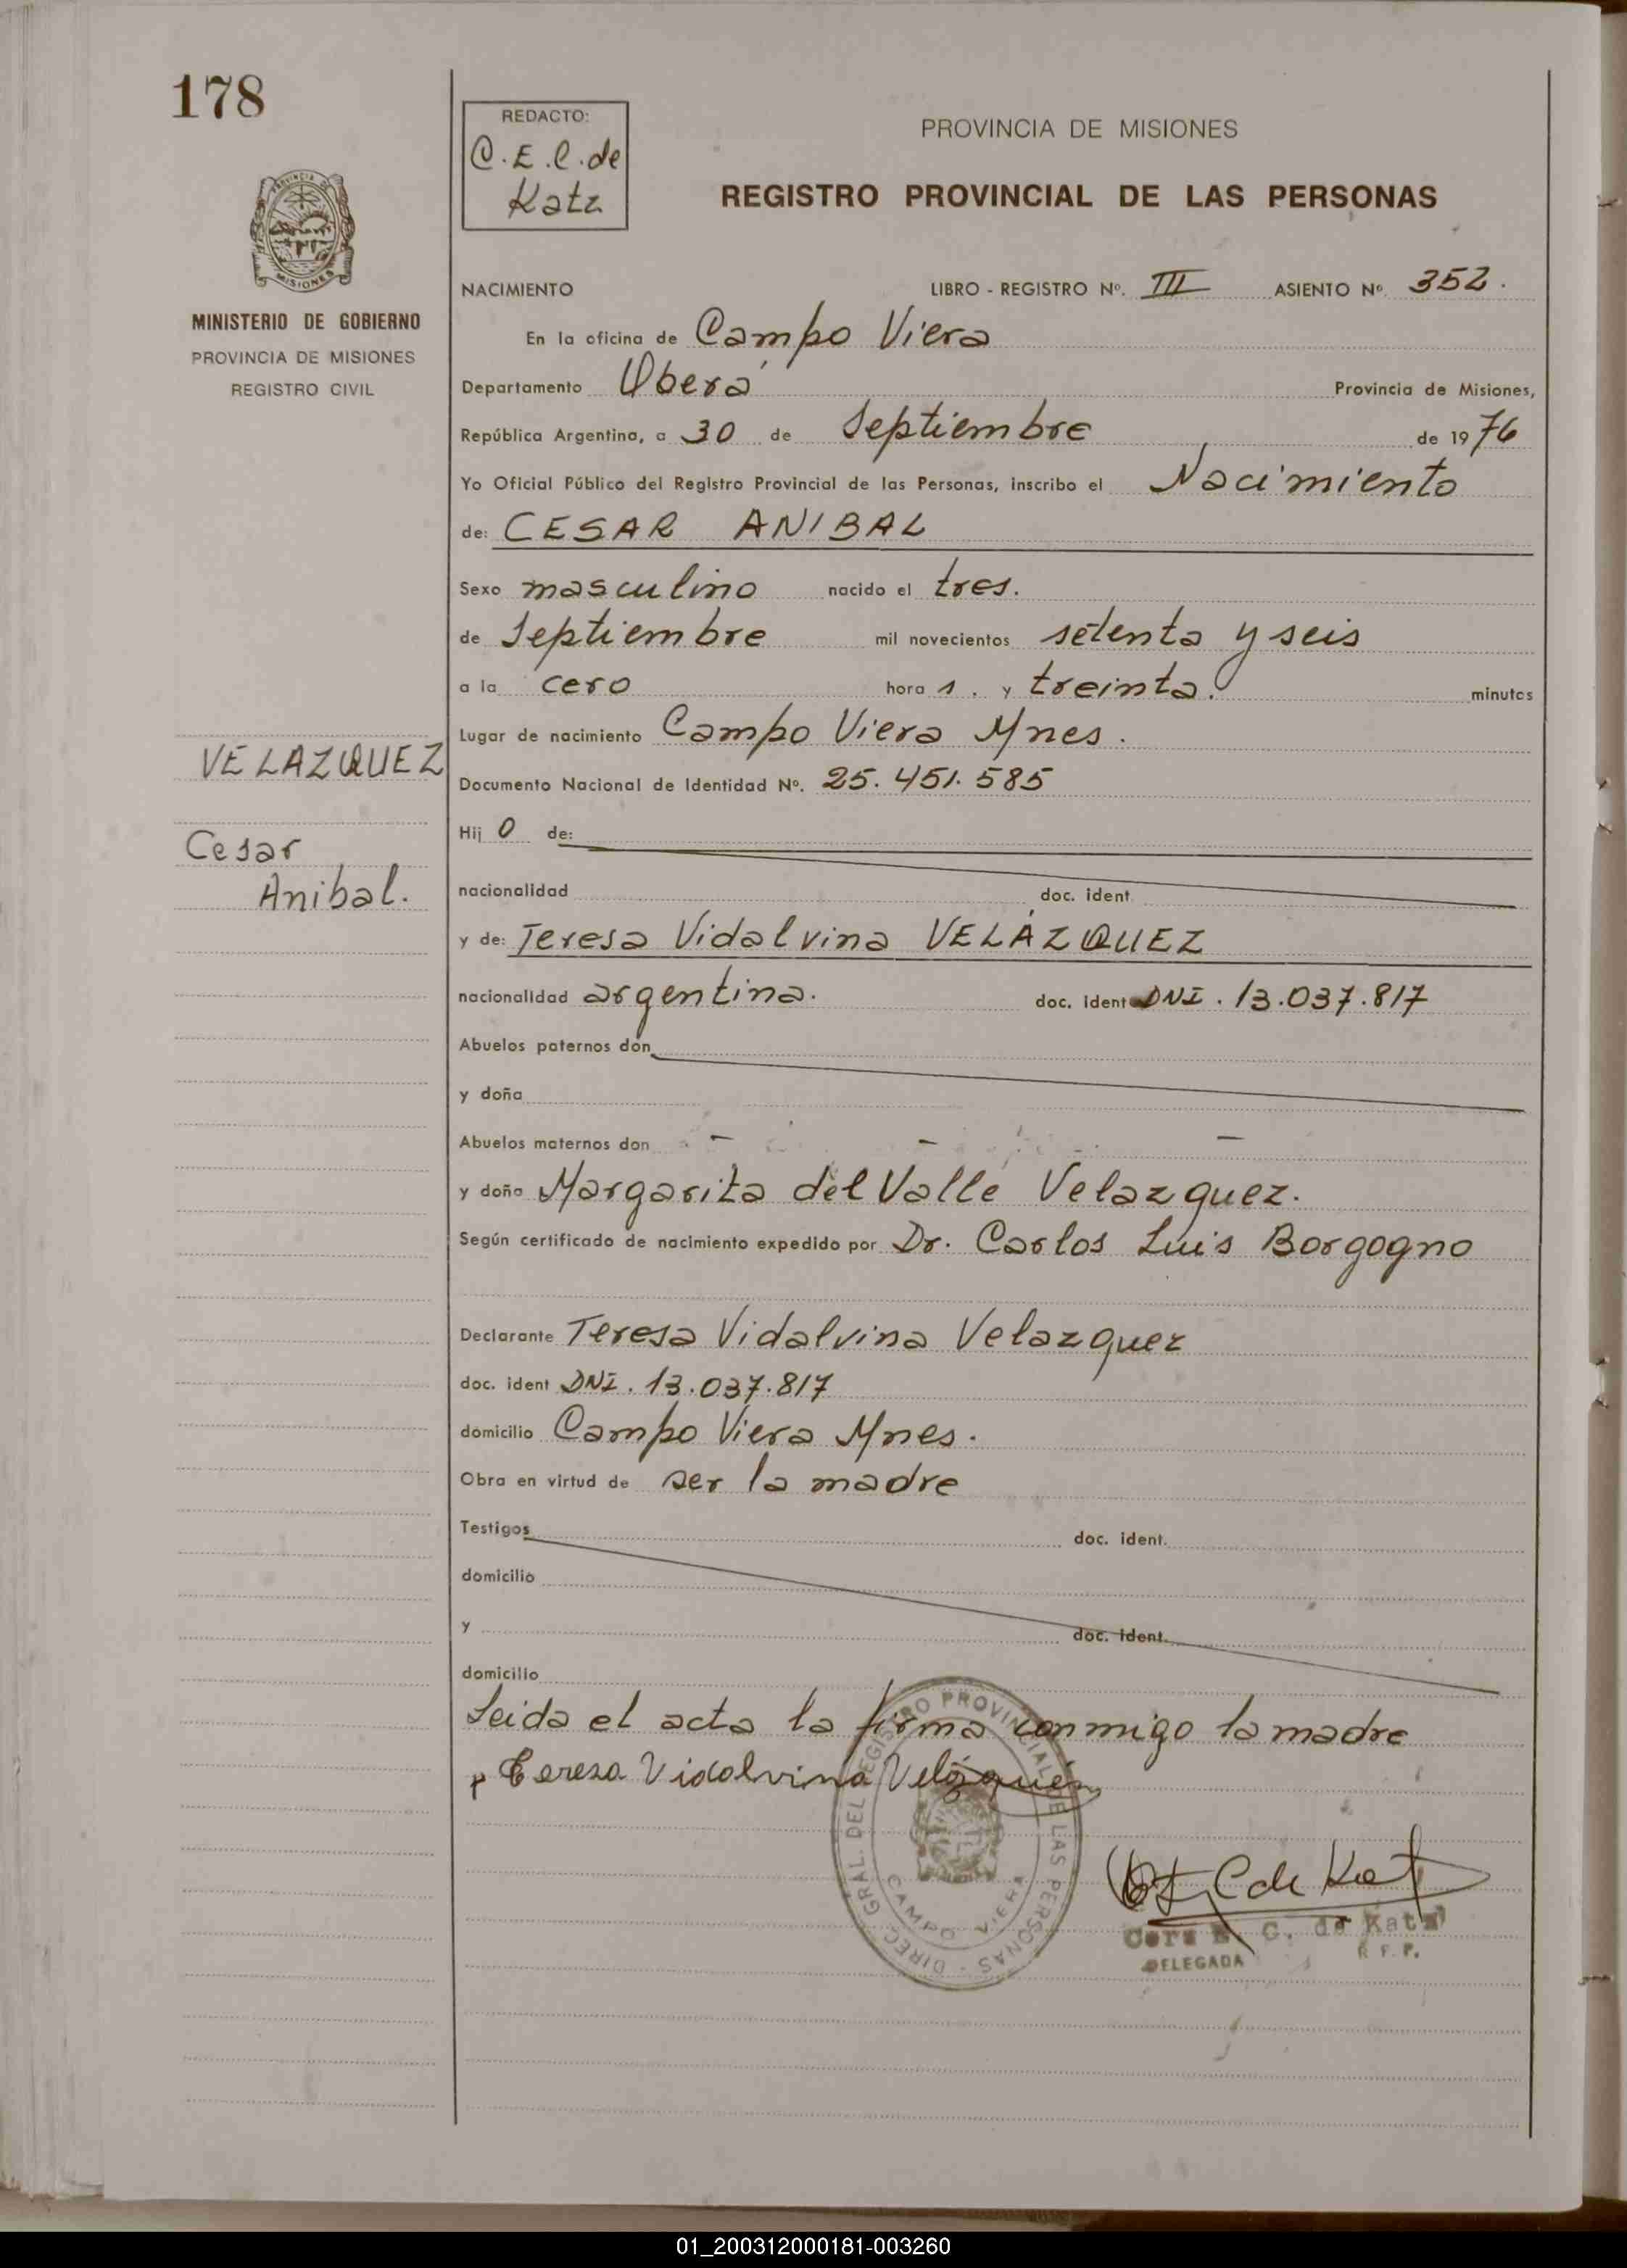 178
REDACTO:
C.E.C. de
Katz
PROVINCIA DE MISIONES
REGISTRO PROVINCIAL DE LAS PERSONAS
PROVINCIA DE
MISIONES
MINISTERIO DE GOBIERNO
PROVINCIA DE MISIONES
REGISTRO CIVIL
VELAZQUEZ
Cesar
Anibal.
NACIMIENTO LIBRO - REGISTRO Nº. III ASIENTO Nº. 352.
En la oficina de Campo Viera
Departamento Oberá Provincia de Misiones,
República Argentina, a 30 de Septiembre de 1976
Yo Oficial Público del Registro Provincial de las Personas, inscribo el Nacimiento
de: CESAR ANIBAL
Sexo masculino nacido el tres.
de Septiembre mil novecientos setenta y seis
a la cero hora s. y treinta. minutos
Lugar de nacimiento Campo Viera Mnes.
Documento Nacional de Identidad Nº. 25.451.585
Hij o de:
nacionalidad doc. ident.
y de: Teresa Vidalvina VELÁZQUEZ
nacionalidad argentina. doc. ident DNI. 13.037.817
Abuelos paternos don
y doña
Abuelos maternos don - - -
y doña Margarita del Valle Velazquez.
Según certificado de nacimiento expedido por Dr. Carlos Luis Borgogno
Declarante Teresa Vidalvina Velazquez
doc. ident DNI. 13.037.817
domicilio Campo Viera Mnes.
Obra en virtud de ser la madre
Testigos doc. ident.
domicilio
y doc. ident.
domicilio
Leida el acta la firma conmigo la madre
Teresa Vidalvina Velázquez
DIREC. GRAL. DEL REGISTRO PROVINCIAL DE LAS PERSONAS -
CAMPO VIERA
C de Katz
G. de Katz
DELEGADA
01_200312000181-003260